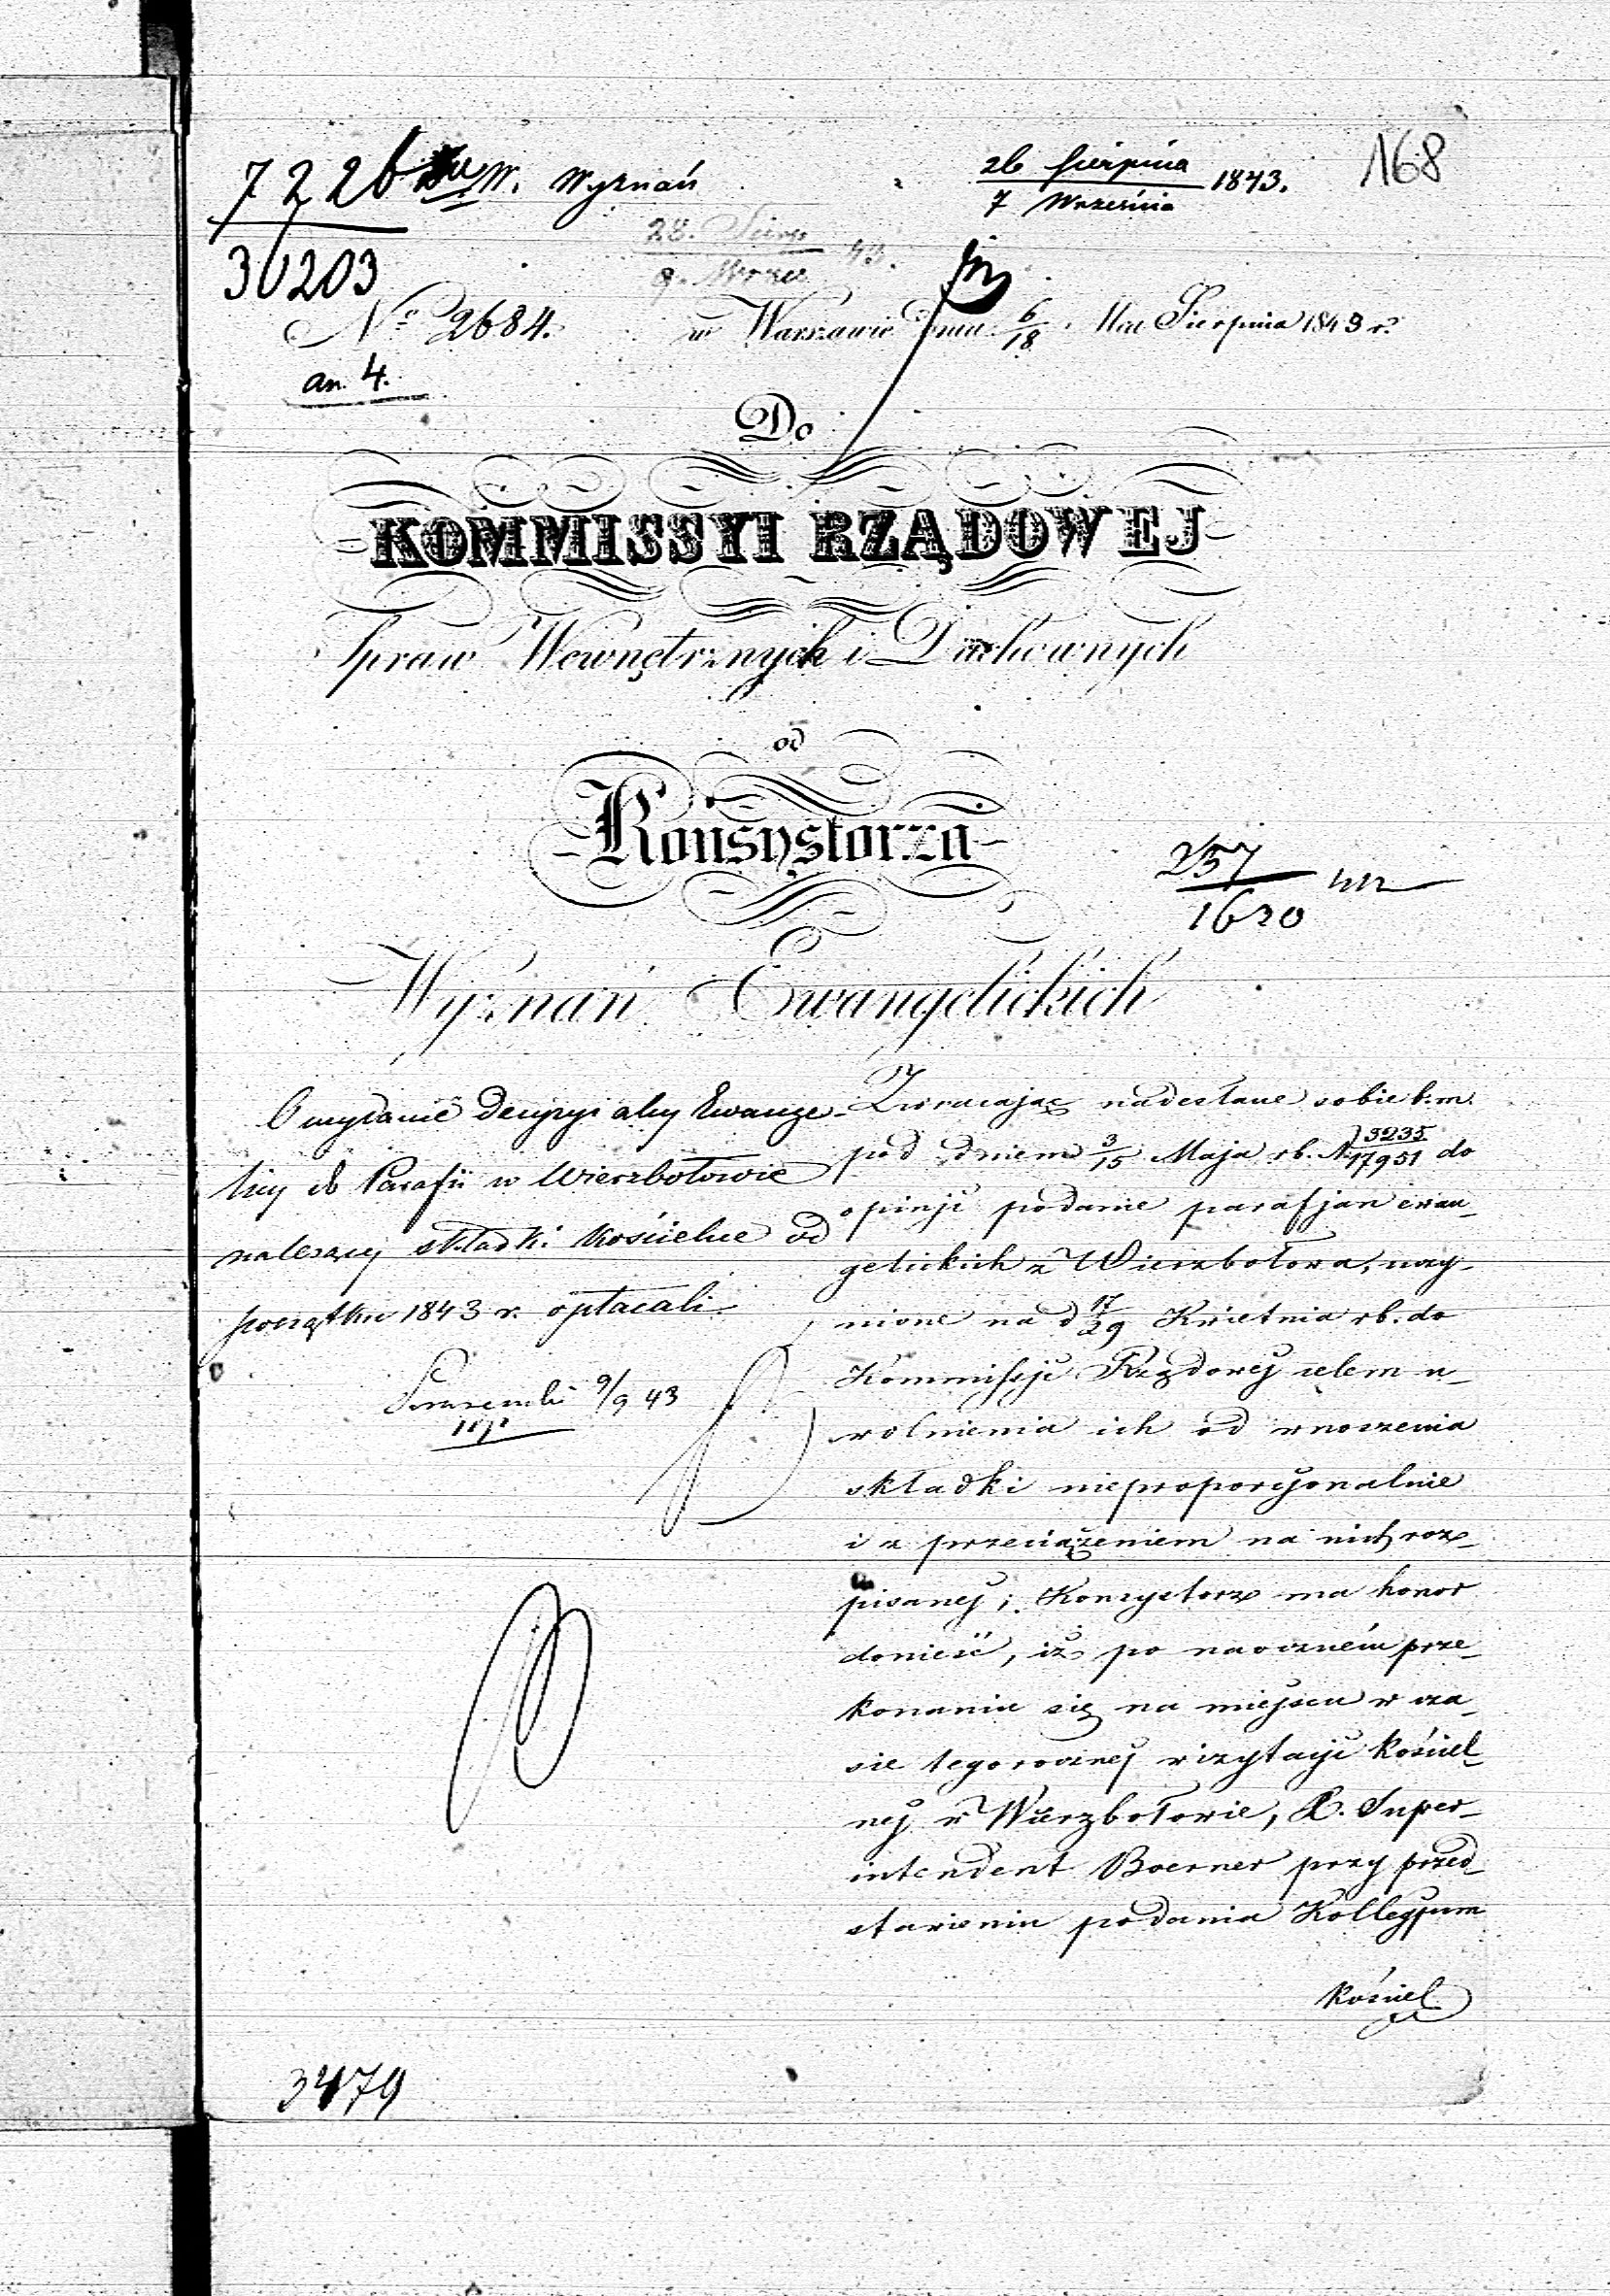 168
7226 W. Wyznań
30203
26 Sierpnia
7 Września 1843.
28. Sierp
9. Wrześ 43.
No 2684.
w Warszawie dnia 6/18 Mca Sierpnia 1843 r.
an. 4.
Do
KOMMISSYI RZĄDOWEJ
Spraw Wewnętrznych i Duchownych
od
Konsystorza
257
1620
Wyznań Ewangelickich
O wydanie decyzyi aby Ewange-
licy do Parafii w Wierzbołowie
należący składki kościelne od
początku 1843 r. opłacali
9/9 43
Zwracając nadesłane sobie b. m.
pod dniem 3/15 Maja rb. N 3235/17951 do
opinji podanie parafjan ewan-
gelickich z Wierzbołowa, uczy-
nione na d 17/29 Kwietnia rb. do
Kommissji Rządowej celem u-
wolnienia ich od wnoszenia
składki nieproporcjonalnie
i z przeciążeniem na nich roz-
pisanej; Konsystorz ma honor
donieść, iż po naoczném prze-
konaniu się na miejscu w cza-
sie tegorocznej wizytacji kościel-
nej w Wierzbołowie, X. Super-
intendent Boerner przy przed-
stawieniu podania Kollegjum
Kościel
3479